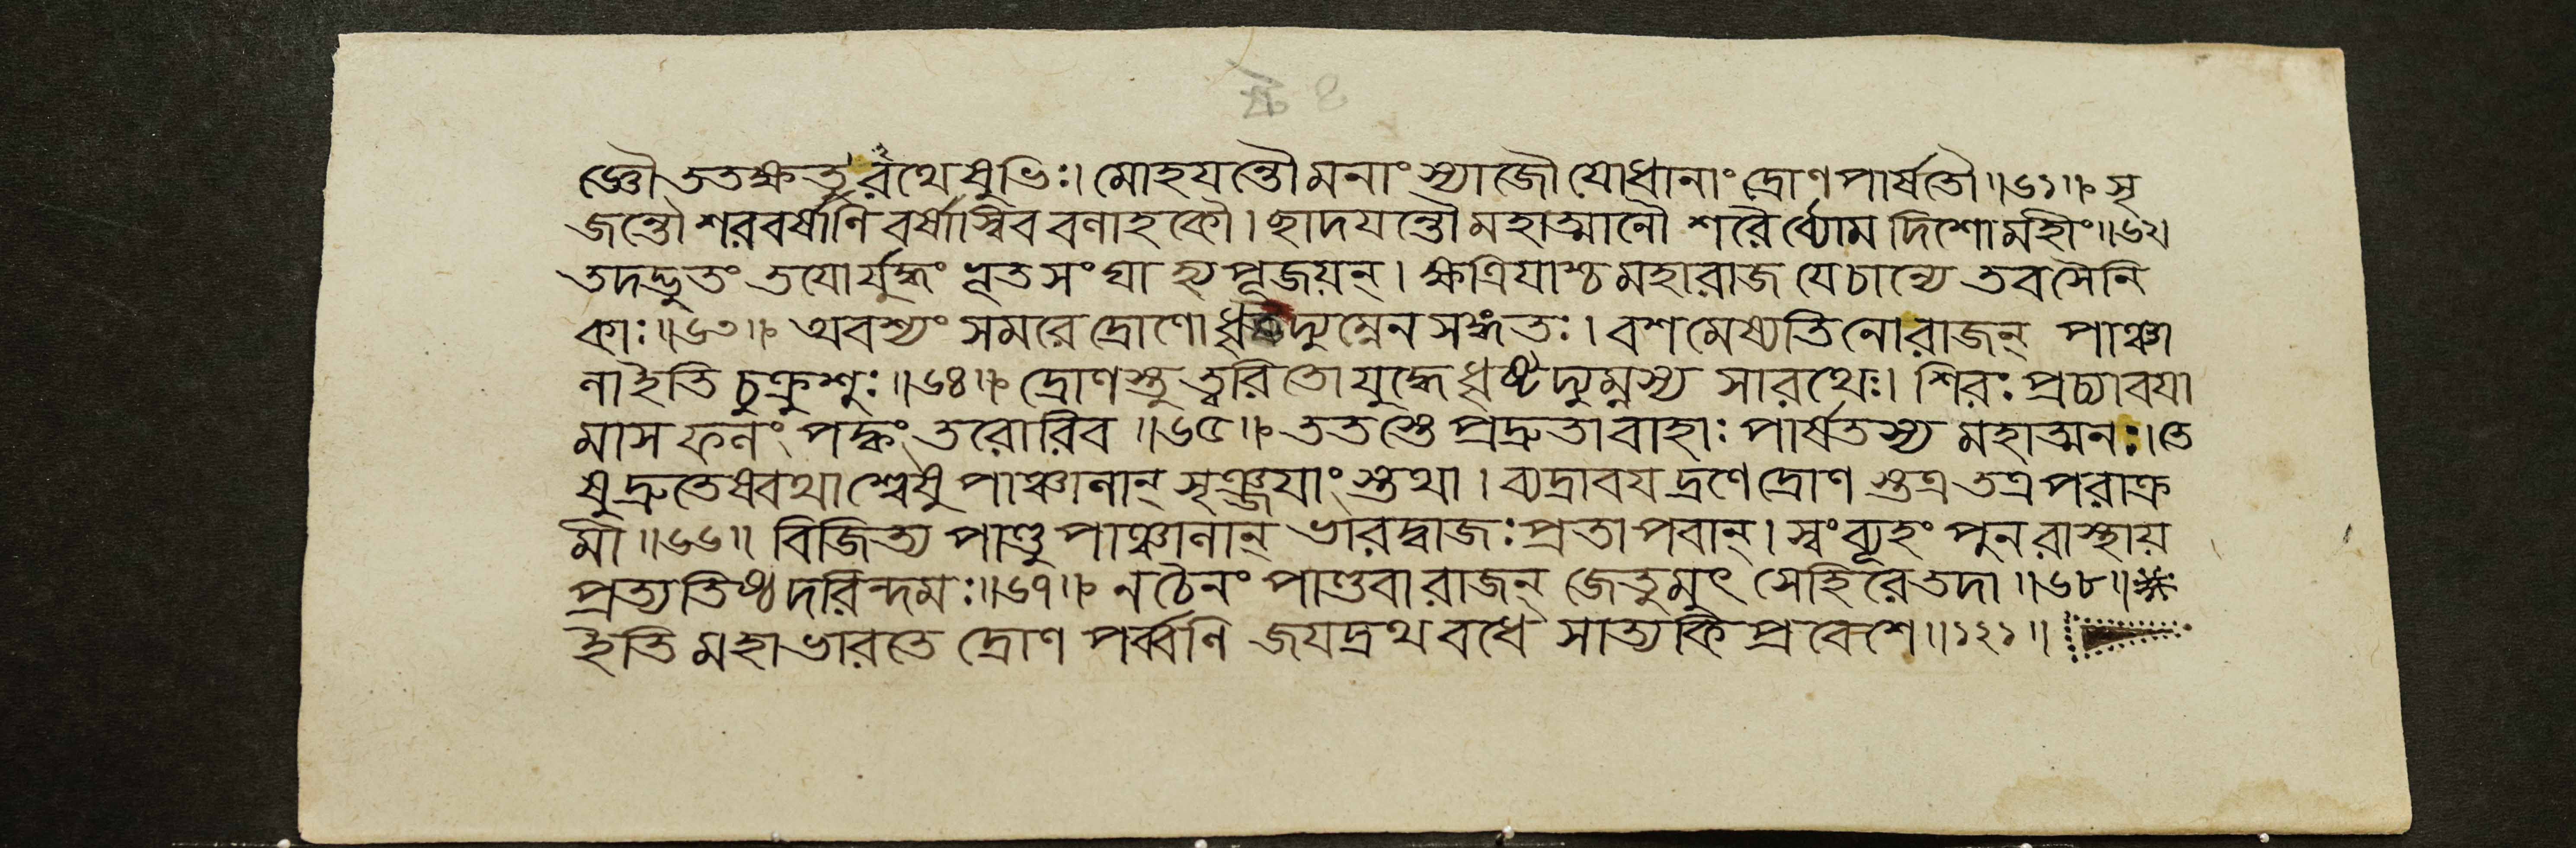 ঞ্ণৌ ততক্ষতূরথেষুভিঃ। মোহযন্তৌ মনাংস্যাজৌ যোধানাং দ্রোণপার্ষতৌ॥৬১॥ সৃ
জন্তৌ শরবর্ষাণি বর্ষাস্বিব বলাহকৌ। ছাদযন্তৌ মহাত্মানৌ শরৈর্ব্যোম দিশো মহীং॥৬২।
তদদ্ভুতং তযোর্যুদ্ধং ভূতসংঘা হ্যপূজয়ন্। ক্ষত্রিযাশ্চ মহারাজ যে চান্যে তব সৈনি
কাঃ॥৬৩॥ অবশ্যং সমরে দ্রোণো ধৃষ্টদ্যুম্নেন সঙ্গতঃ। বশমেষ্যতি নো রাজন্ পাঞ্চা
লা ইতি চুক্রুশুঃ॥৬৪॥ দ্রোণস্তু ত্বরিতো যুদ্ধে ধৃষ্টদ্যুম্নস্য সারথেঃ। শিরঃ প্রচ্যাবযা
মাস ফলং পক্বং তরোরিব॥৬৫॥ ততস্তে প্রদ্রুতা বাহাঃ পার্ষতস্য মহাত্মনঃ। তে
ষু দ্রুতেষ্বথাশ্বেষু পাঞ্চালান্ সৃঞ্জযাংস্তথা। ব্যদ্রাবযদ্রণে দ্রোণস্তত্র তত্র পরাক্র
মী॥৬৬॥ বিজিত্য পাণ্ডুপাঞ্চালান্ ভারদ্বাজঃ প্রতাপবান্। স্বং ব্যূহং পুনরাস্থায়
প্রত্যতিষ্ঠদরিন্দমঃ॥৬৭॥ ন চৈনং পাণ্ডবা রাজন্ জেতুমুৎসেহিরে তদা॥৬৮॥
ইতি মহাভারতে দ্রোণপর্ব্বণি জযদ্রথবধে সাত্যকিপ্রবেশে॥১২১॥